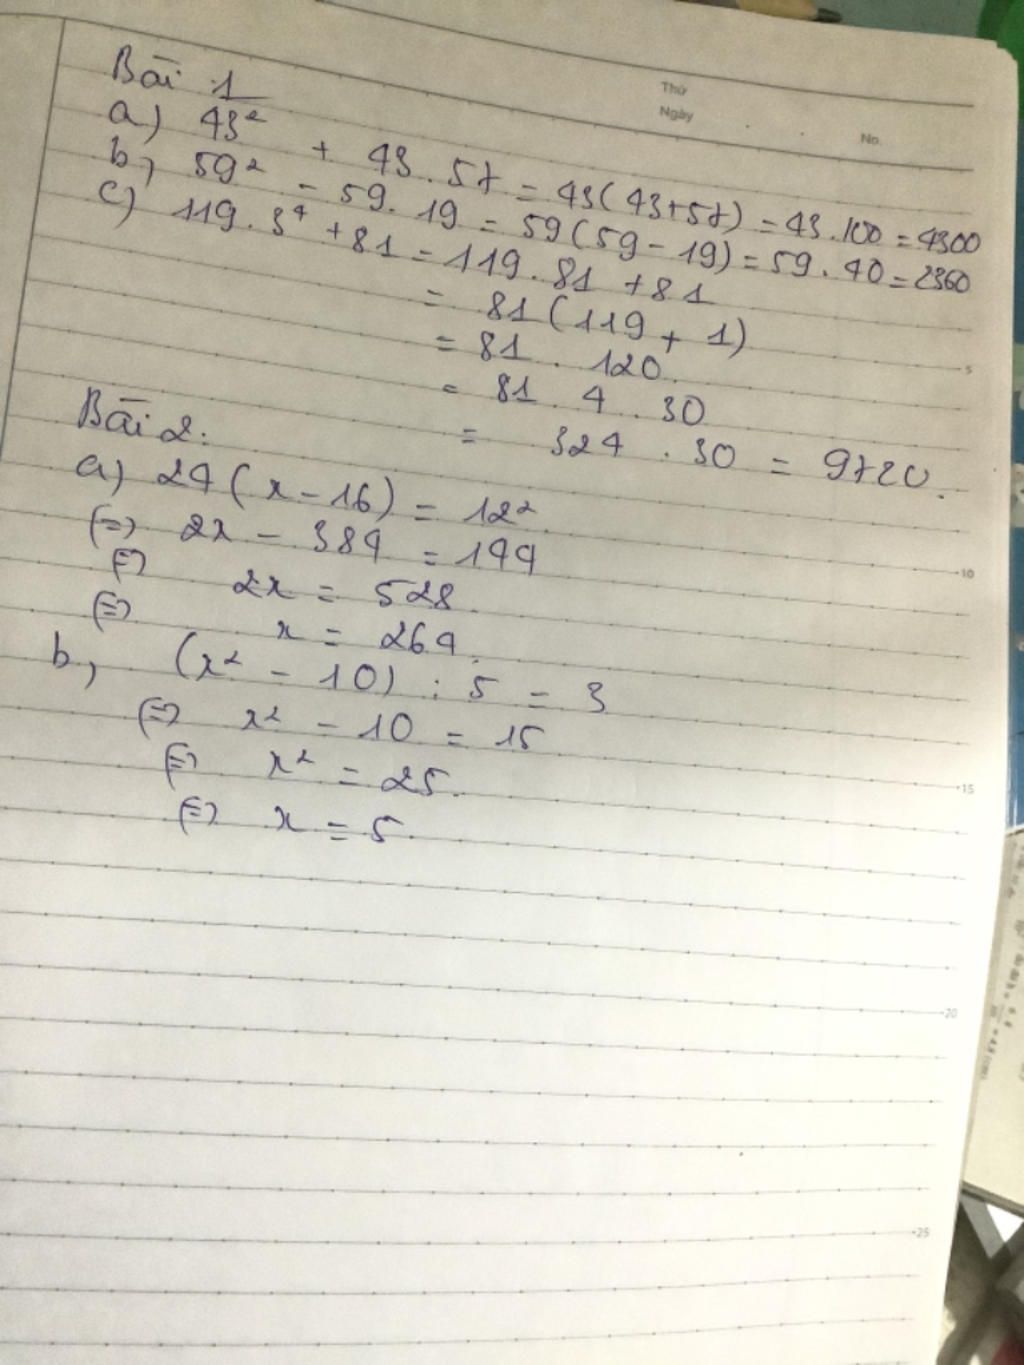 Thứ
Ngày
No.
Bài 1
a) 43² + 43 . 57 = 43(43+57) = 43.100 = 4300
b, 59² - 59. 19 = 59(59 - 19) = 59 . 40 = 2360
c) 119.3⁴ +81 = 119. 81 +81
= 81(119 + 1)
= 81 . 120.
= 81 . 4 . 30
= 324 . 30 = 9720.
Bài 2:
a) 24(x-16) = 12²
(=) 2x - 384 = 144
(=) 2x = 528.
(=) x = 264.
b, (x² - 10) : 5 = 3
(=) x² - 10 = 15
(=) x² = 25.
(=) x = 5.
5
10
15
20
25